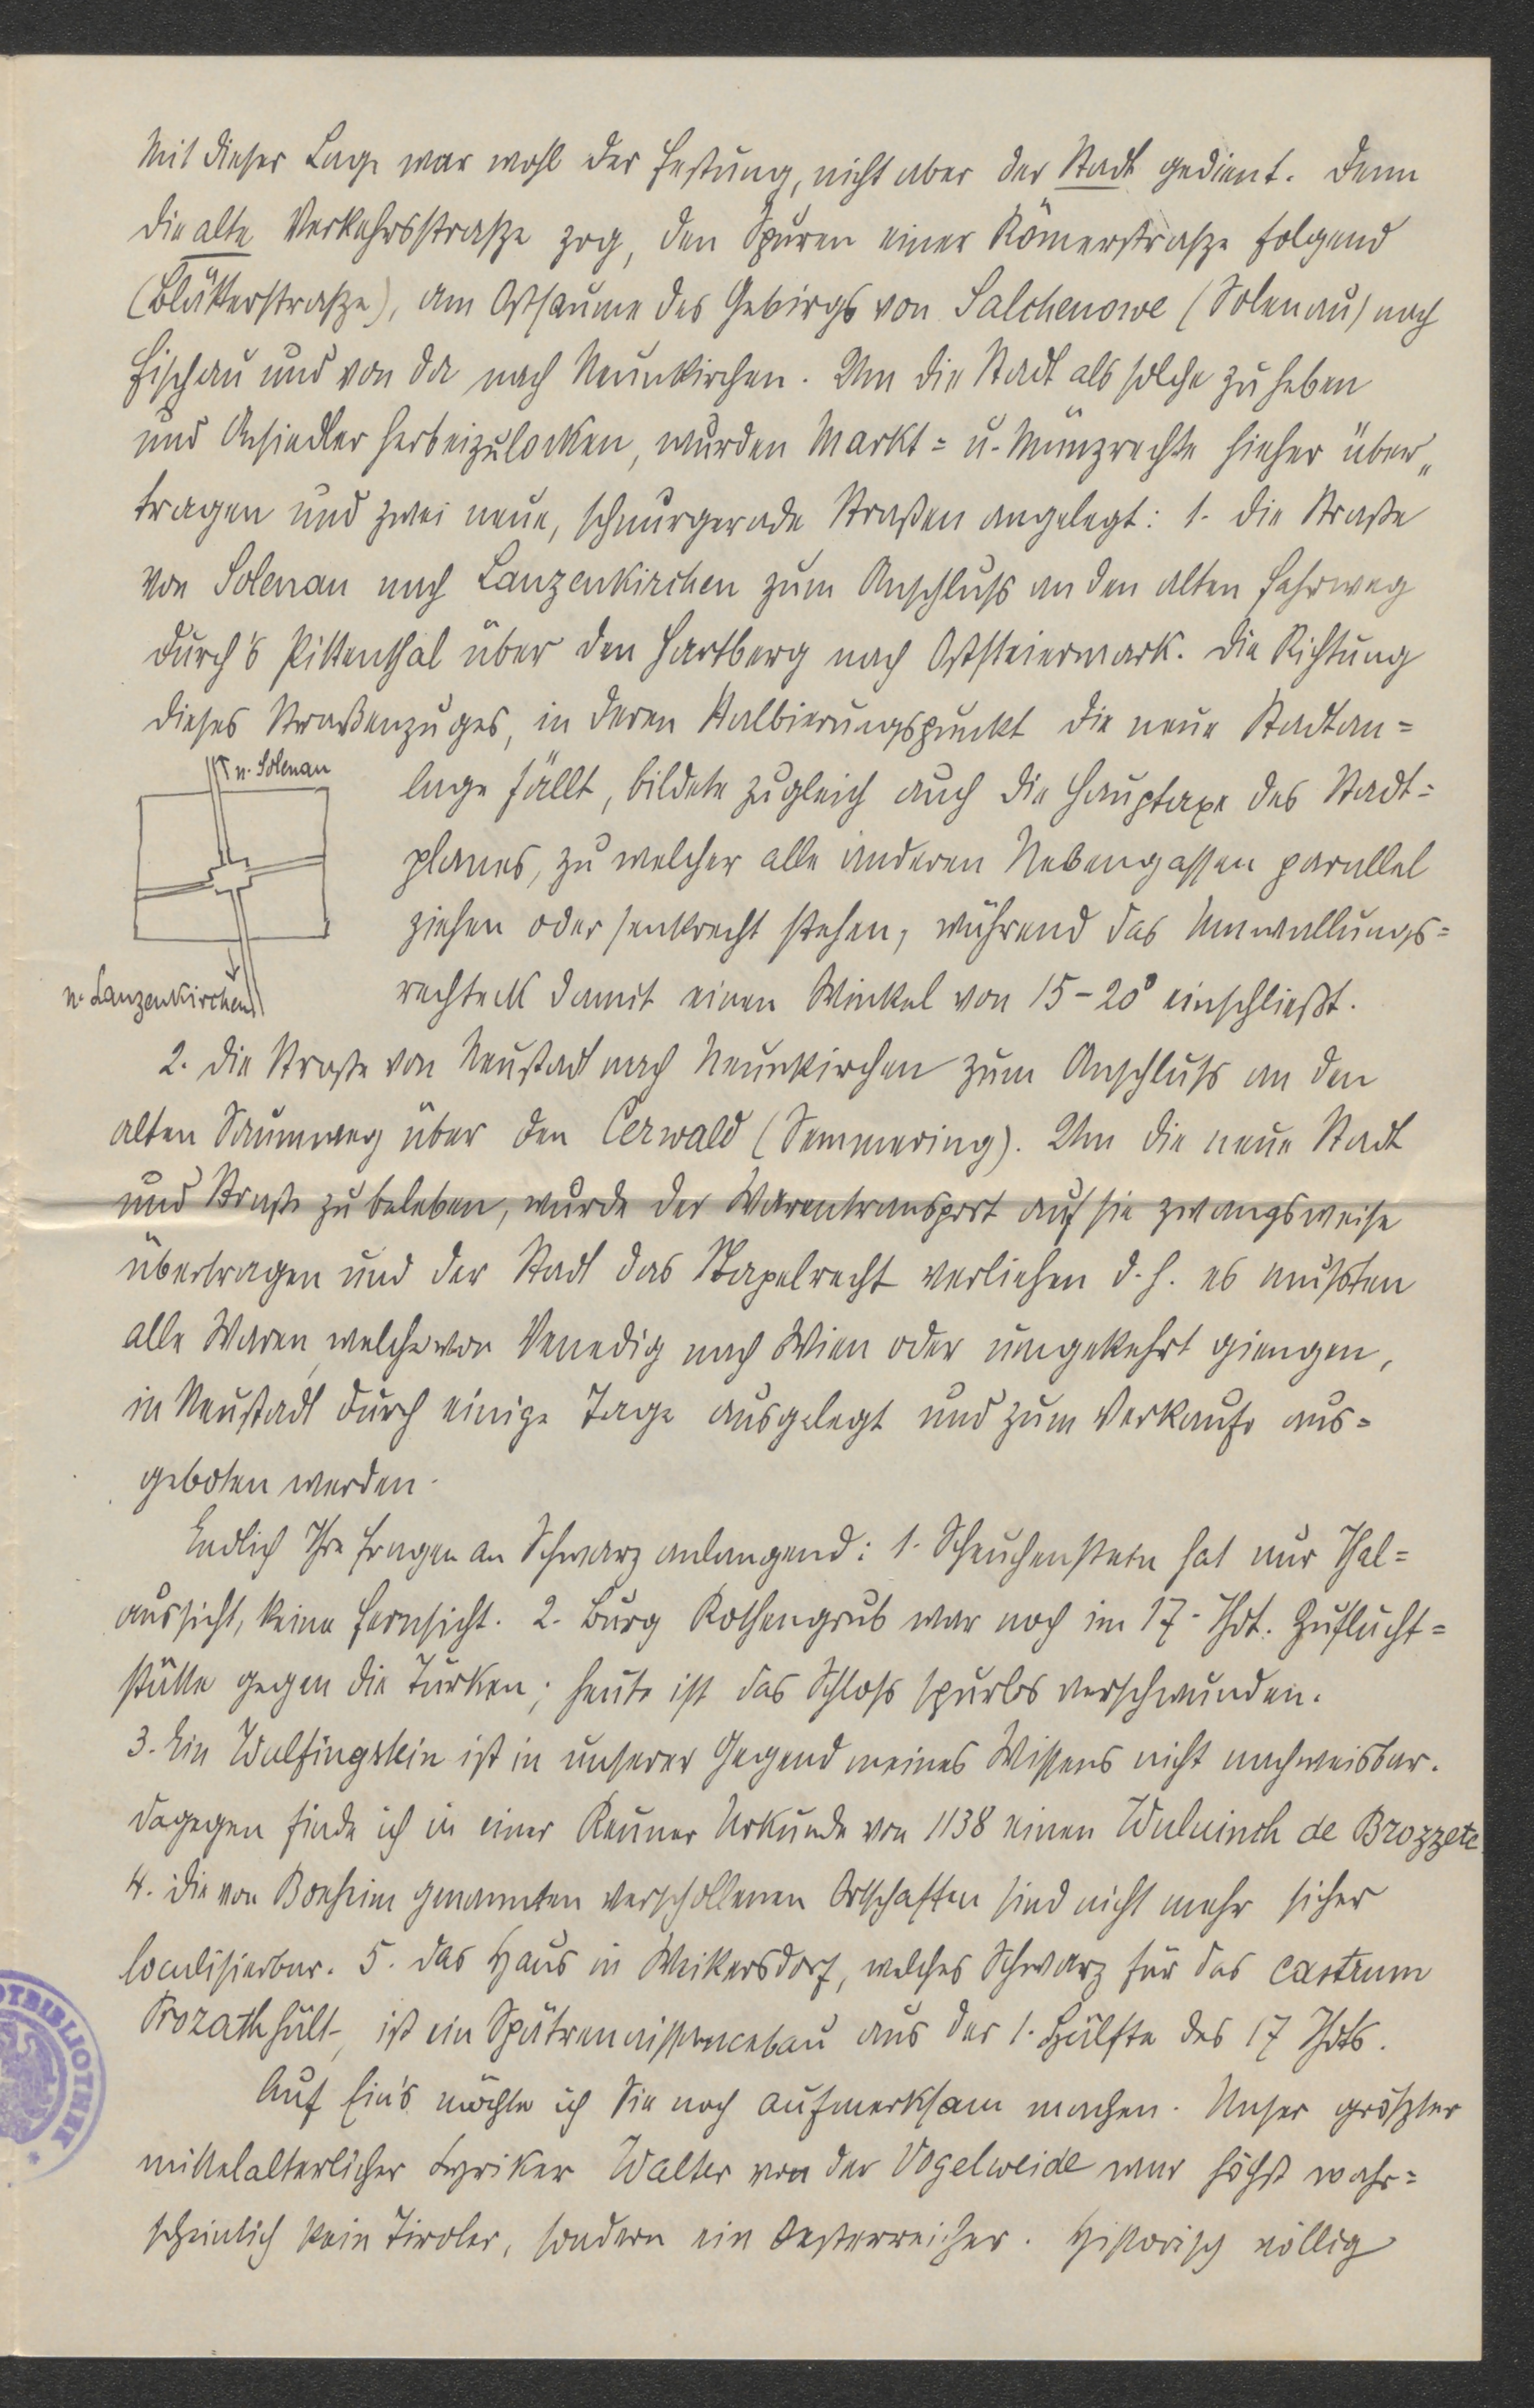 Mit dieser Lage war wohl der Festung, nicht aber der Stadt gedient. Denn
die alte Verkehrsstraße zog, den Spuren einer Römerstraße folgend
(Blätterstraße), am Ostsaume des Gebirgs von Salchenowe (Solenau) nach
Fischau und von da nach Neunkirchen. Um die Stadt als solche zu heben
und Ansiedler herbeizulocken, wurden Markt= u. Münzrechte hieher über„
tragen und zwei neue, schnurgerade Straßen angelegt: 1. die Straße
von Solenau nach Lanzenkirchen zum Anschluss an den alten Fahrweg
durch's Pittenthal über den Hartberg nach Oststeiermark. Die Richtung
dieses Straßenzuges, in deren Halbierungspunkt die neue Stadtan=
n. Solenau
lage fällt, bildete zugleich auch die Hauptaxe des Stadt=
planes, zu welcher alle anderen Nebengassen parallel
ziehen oder senkrecht stehen, während das Umwallungs=
rechteck damit einen Winkel von 15–20° einschließt.
n. Lanzenkirchen
2. die Straße von Neustadt nach Neunkirchen zum Anschluss an den
alten Saumweg über den Cerwald (Semmering). Um die neue Stadt
und Straße zu beleben, wurde der Warentransport auf sie zwangsweise
übertragen und der Stadt das Stapelrecht verliehen d. h. es mußten
alle Waren, welche von Venedig nach Wien oder umgekehrt giengen,
in Neustadt durch einige Tage ausgelegt und zum Verkaufe aus=
geboten werden.
Endlich Ihre Fragen an Schwarz anlangend: 1. Scheuchenstein hat nur Thal=
aussicht, keine Fernsicht. 2. Burg Rothengrub war noch im 17. Jhdt. Zuflucht=
stätte gegen die Türken; heute ist das Schloss spurlos verschwunden.
3. Ein Wulfingstein ist in unserer Gegend meines Wissens nicht nachweisbar.
Dagegen finde ich in einer Reuner Urkunde von 1138 einen Wuluinch de Brozzete.
4. die von Boeheim genannten verschollenen Ortschaften sind nicht mehr sicher
localisierbar. 5. das Haus in Weikersdorf, welches Schwarz für das castrum
Prozath hält, ist ein Spätrenaissancebau aus der 1. Hälfte des 17 Jhdts.
Auf Ein's möchte ich Sie noch aufmerksam machen. Unser größter
mittelalterlicher Lyriker Walter von der Vogelweide war höchst wahr=
scheinlich kein Tiroler, sondern ein Oesterreicher. Historisch völlig